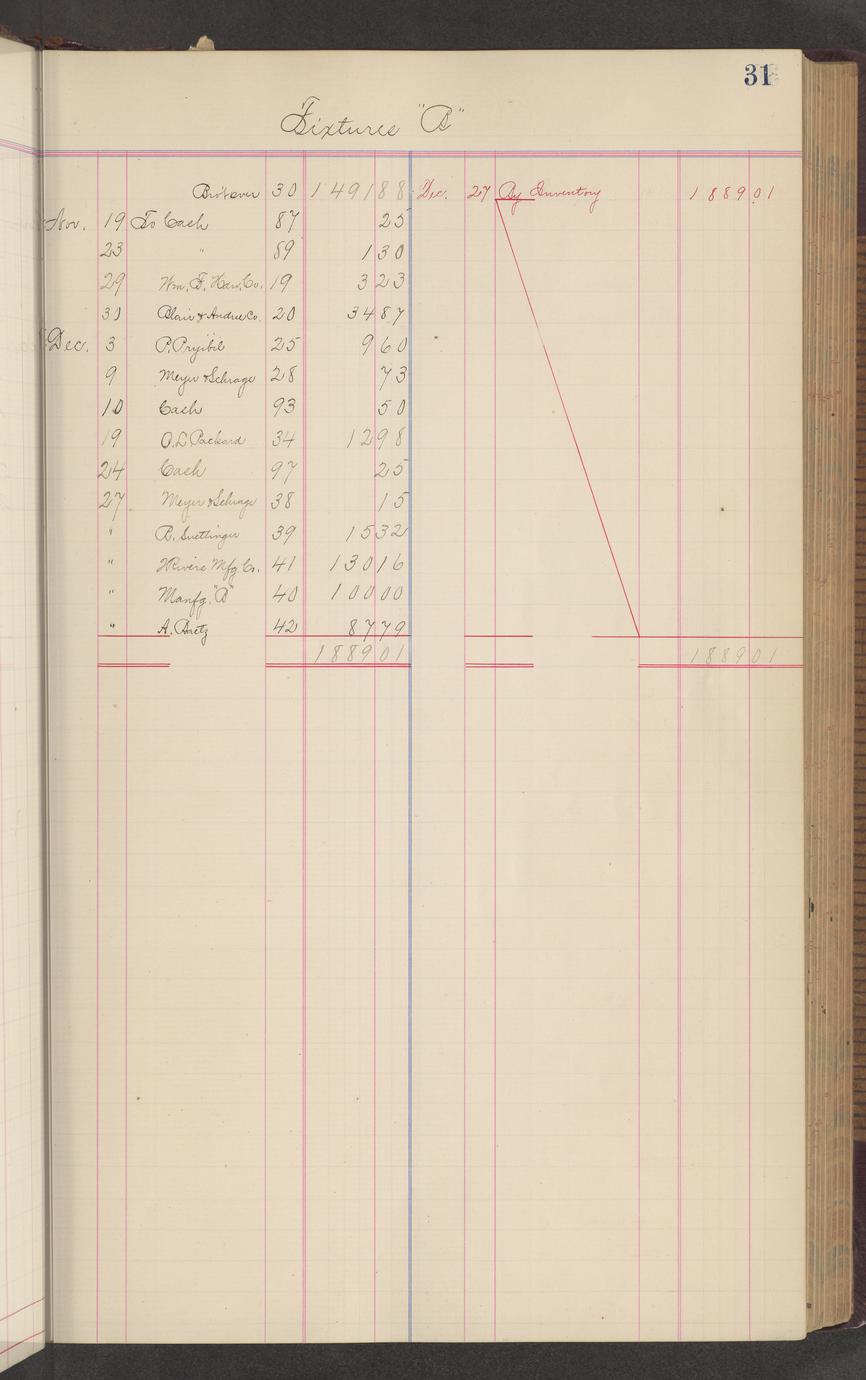 31
Fixtures "B"
Bro't over 30 1491 88 Dec. 27 By Inventory 1889.01
Nov. 19 To Cash 87 25
23 " 89 1 30
29 Wm. F. Hdw. Co. 19 3 23
30 Blair & Andree Co. 20 34 87
Dec. 3 P. Pryibil 25 9 60
9 Meyer & Schrage 28 73
10 Cash 93 50
19 O. L. Packard 34 12 98
24 Cash 97 25
27 Meyer & Schrage 38 15
" R. Suettinger 39 15 32
" Mfg. Co. 41 130 16
" Manfg. "B" 40 100 00
" A. Baetz 42 87 79
1889 01 1889 01